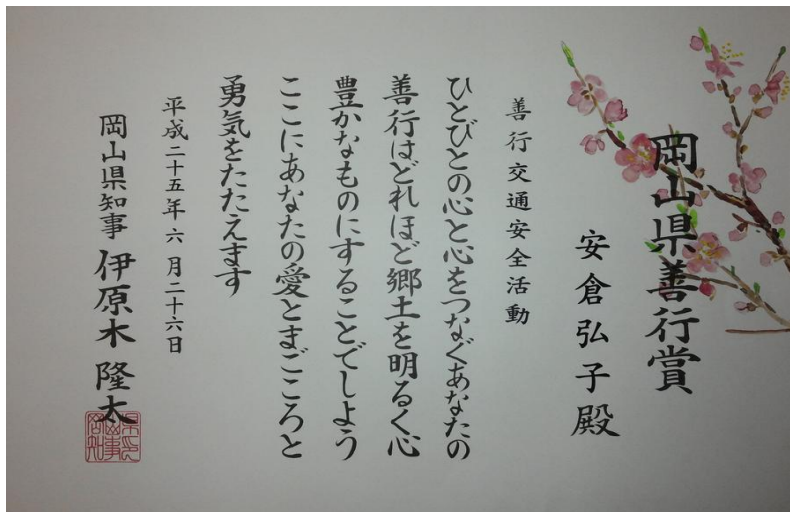 岡山県善行賞
安倉弘子殿
善行交通安全活動
ひとびとの心と心をつなぐあなたの
善行はどれほど郷土を明るく心
豊かなものにすることでしよう
ここにあなたの愛とまごころと
勇気をたたえます
平成二十五年六月二十六日
岡山県知事 伊原木隆太